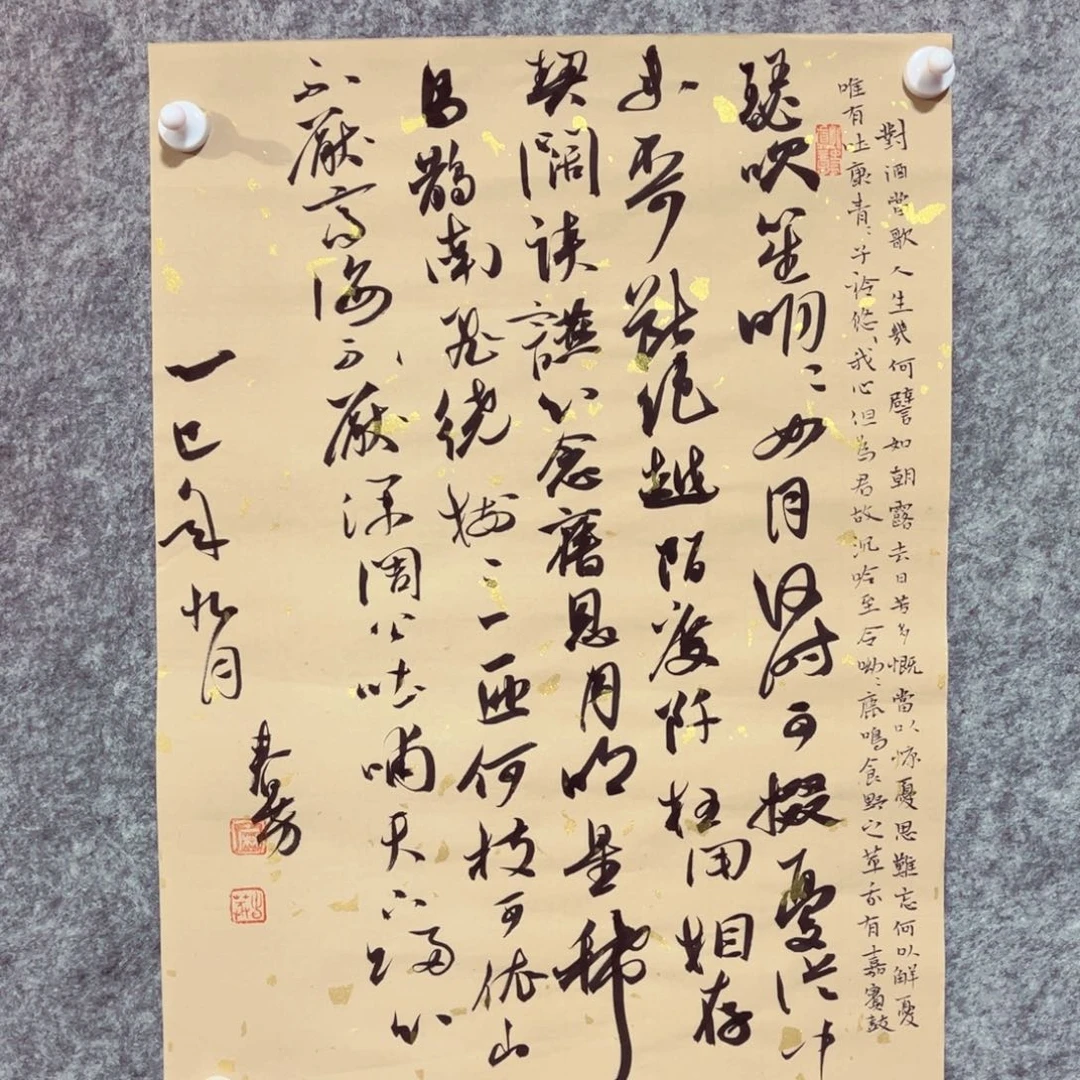 對酒當歌人生幾何譬如朝露去日苦多慨當以慷憂思難忘何以解憂
唯有杜康青々子衿悠々我心但為君故沉吟至今呦々鹿鳴食野之苹我有嘉賓鼓
瑟吹笙明々如月何時可掇憂從中
来不可斷絕越陌度阡枉用相存
契闊談讌心念舊恩月明星稀
烏鵲南飛繞樹三匝何枝可依山
不厭高海不厭深周公吐哺天下歸心
乙巳年九月
春芳